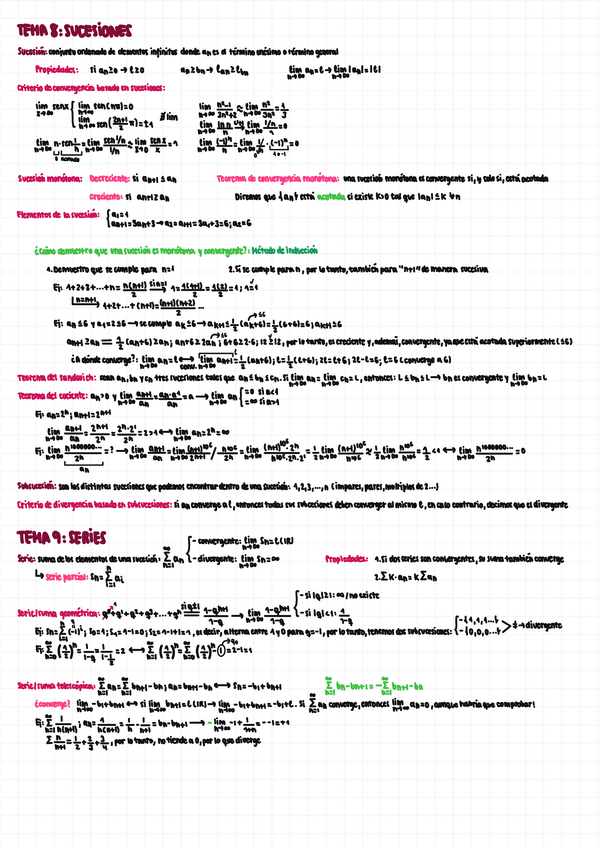 TEMA 8: SUCESIONES
Sucesión: conjunto ordenado de elementos infinitos donde an es el término enésimo o término general
Propiedades: si an≥0 → l≥0   an≥bn → lan≥lbn   lim n→∞ an=l → lim n→∞ |an|=|l|
Criterio de convergencia basado en sucesiones:
lim x→∞ senx { lim n→∞ sen(πn)=0
lim n→∞ n²-1/3n²+2 ≈ lim n→∞ n²/3n² = 1/3
lim n→∞ n·sen 1/n = lim n→∞ sen 1/n / 1/n ≈ lim x→0 sen x/x = 1
lim n→∞ (-1)ⁿ/n = lim n→∞ 1/n · (-1)ⁿ = 0
Sucesión monótona: Decreciente: si an+1 ≤ an   Teorema de convergencia monótona: una sucesión monótona es convergente si, y solo si, está acotada
Creciente: si an+1≥an   Diremos que {an} está acotada si existe K>0 tal que |an|≤K ∀n
Elementos de la sucesión: { a1=1
an+1=3an+3 → a2=a1+1=3a1+3=6; a2=6
¿Cómo demuestro que una sucesión es monótona y convergente?: Método de inducción
1. Demuestro que se cumple para n=1   2. Si se cumple para n, por lo tanto, también para "n+1" de manera sucesiva
Ej: 1+2+3+...+n = n(n+1)/2 si n=1 → 1=1(1+1)/2 = 1(2)/2 = 1; 1=1
n=n+1 → 1+2+...+(n+1)=(n+1)(n+2)/2 ...
Ej: an≤6 y a1=2≤6 → se cumple ak≤6 → ak+1=1/2(ak+6)=1/2(6+6)=6; ak+1≤6
an+1≥an = 1/2(an+6)≥an; an+6≥2an; 6+6≥2·6; 12≥12, por lo tanto, es creciente y, además, convergente, ya que está acotada superiormente (≤6)
¿A dónde converge?: lim n→∞ an=l ↔ lim n→∞ an+1=1/2(an+6); l=1/2(l+6); 2l=l+6; 2l-l=6; l=6 (converge a 6)
Teorema del sandwich: sean an, bn y cn tres sucesiones tales que an≤bn≤cn. Si lim n→∞ an=lim n→∞ cn=L, entonces: L≤bn≤L → bn es convergente y lim n→∞ bn=L
Teorema del cociente: an>0 y lim n→∞ an+1/an = an·a¹/an = a → lim n→∞ an { =0 si a<1
=∞ si a>1
Ej: an=2ⁿ; an+1=2ⁿ⁺¹
lim n→∞ an+1/an = 2ⁿ⁺¹/2ⁿ = 2ⁿ·2¹/2ⁿ = 2>1 ↔ lim n→∞ an=2ⁿ=∞
Subsucesión: son las distintas sucesiones que podemos encontrar dentro de una sucesión: 1,2,3,...,n (impares, pares, múltiplos de 2...)
Criterio de divergencia basado en subsucesiones: si an converge a l, entonces todas sus subsucesiones deben converger al mismo l, en caso contrario, decimos que es divergente
TEMA 9: SERIES
Serie: suma de los elementos de una sucesión: ∞ Σ n=1 an { - convergente: lim n→∞ Sn=l(IR)
- divergente: lim n→∞ Sn=∞
Propiedades: 1. Si dos series son convergentes, su suma también converge
↳ Serie parcial: Sn=Σ ai
2. Σ K·an=K Σ an
Serie/suma geométrica: q⁰+q¹+q²+q³+...+qⁿ si q≠1 = 1-qⁿ⁺¹/1-q → lim n→∞ 1-qⁿ⁺¹/1-q { - si |q|≥1: ∞/no existe
- si |q|<1: 1/1-q
Ej: Sn=Σ(-1)ⁱ; S0=1; S1=1-1=0; S2=1-1+1=1, es decir, alterna entre 1 y 0 para q=-1, por lo tanto, tenemos dos subsucesiones: { -{1,1,1...}
-{0,0,0...} > ≠ → divergente
Ej: Σ n=0 (1/2)ⁿ = 1/1-q = 1/1-1/2 = 2 ↔ Σ n=1 (1/2)ⁿ = Σ n=0 (1/2)ⁿ - 1 = 2-1=1
Serie/suma telescópica: Σ n=1 an=Σ n=1 bn+1-bn; an=bn+1-bn ↔ Sn=-b1+bn+1   Σ n=1 bn-bn+1=-Σ n=1 bn+1-bn
¿converge? lim n→∞ -b1+bn+1 ↔ si lim n→∞ bn+1=l(IR) → lim n→∞ -b1+bn+1=-b1+l. Si Σ n=1 an converge, entonces lim n→∞ an=0, aunque habría que comprobar!
Ej: Σ n=1 1/n(n+1); an=1/n(n+1)=1/n-1/n+1=bn-bn+1 → -lim n→∞ -1+1/n+1=--1=+1
Σ n/n+1=1/2+2/3+3/4, por lo tanto, no tiende a 0, por lo que diverge